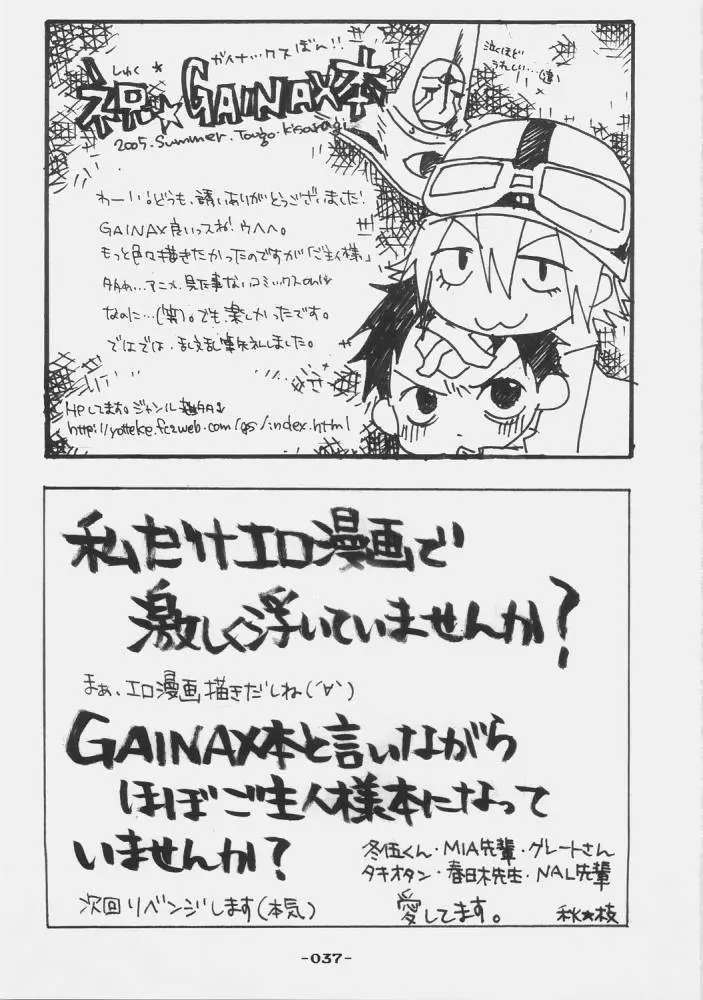 ガイナックスぼん!!
しゅく
祝☆GAINAX本
2005.Summer.Tougo.Kisaragi
泣くほど
うれしい…
わーい!どうも、誘いありがとうございました!
GAINAX良いっスね!ウヘヘ。
もっと色々描きたかったのですが「ご主人様」
アニメ、見た事ないコミックスonly
なのに…(笑)。でも楽しかったです。
ではでは、乱文乱筆失礼しました。
HPしてます。ジャンル
http://yotteke.fc2web.com/gs/index.html
私だけエロ漫画で
激しく浮いていませんか?
まぁ、エロ漫画描きだしね(´∀`)
GAINAX本と言いながら
ほぼご主人様本になって
いませんか?
冬伍くん・MIA先輩・グレートさん
タキオタン・春日木先生・NAL先輩
次回リベンジします(本気)
愛してます。
秋★枝
-037-